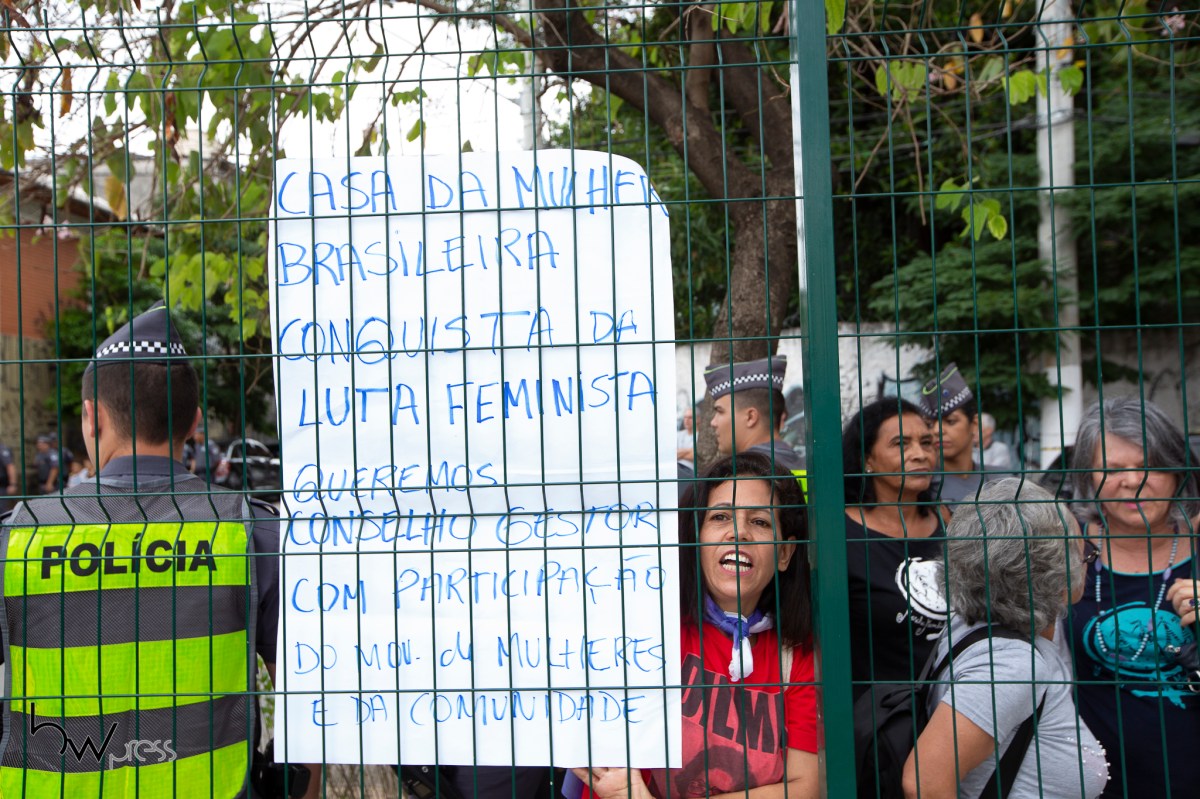 CASA DA MULHER
BRASILEIRA
CONQUISTA DA
LUTA FEMINISTA
QUEREMOS
CONSELHO GESTOR
COM PARTICIPAÇÃO
DO MOV. de MULHERES
E DA COMUNIDADE
POLÍCIA
DILMA
bwpress